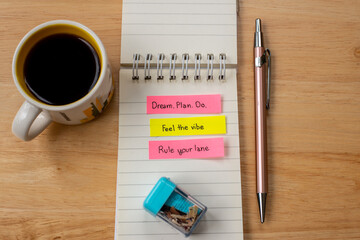 Dream. Plan. Do.
Feel the vibe
Rule your lane